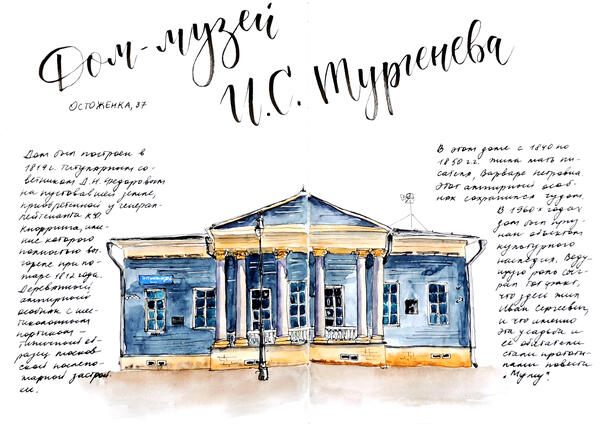 Дом-музей
И.С. Тургенева
Остоженка, 37
Дом был построен в
1819 г. титулярным со-
ветником Д.Н. Федоровым
на пустовавшей земле,
приобретенной у генерал-
лейтенанта К.Ф.
Кнорринга, име-
ние которого
полностью вы-
горело при по-
жаре 1812 года.
Деревянный
ампирный
особняк с шес-
тиколонным
портиком -
типичный об-
разец москов-
ской послепо-
жарной застрой-
ки.
В этом доме с 1840 по
1850 гг. жила мать пи-
сателя, Варвара Петровна
Этот ампирный особ-
няк сохранился чудом.
В 1960-х годах
дом был приз-
нан объектом
культурного
наследия. Веду-
щую роль сыг-
рал тот факт,
что здесь жил
Иван Сергеевич,
и что именно
эта усадьба и
её обитатели
стали прототи-
пами повести
"Муму".